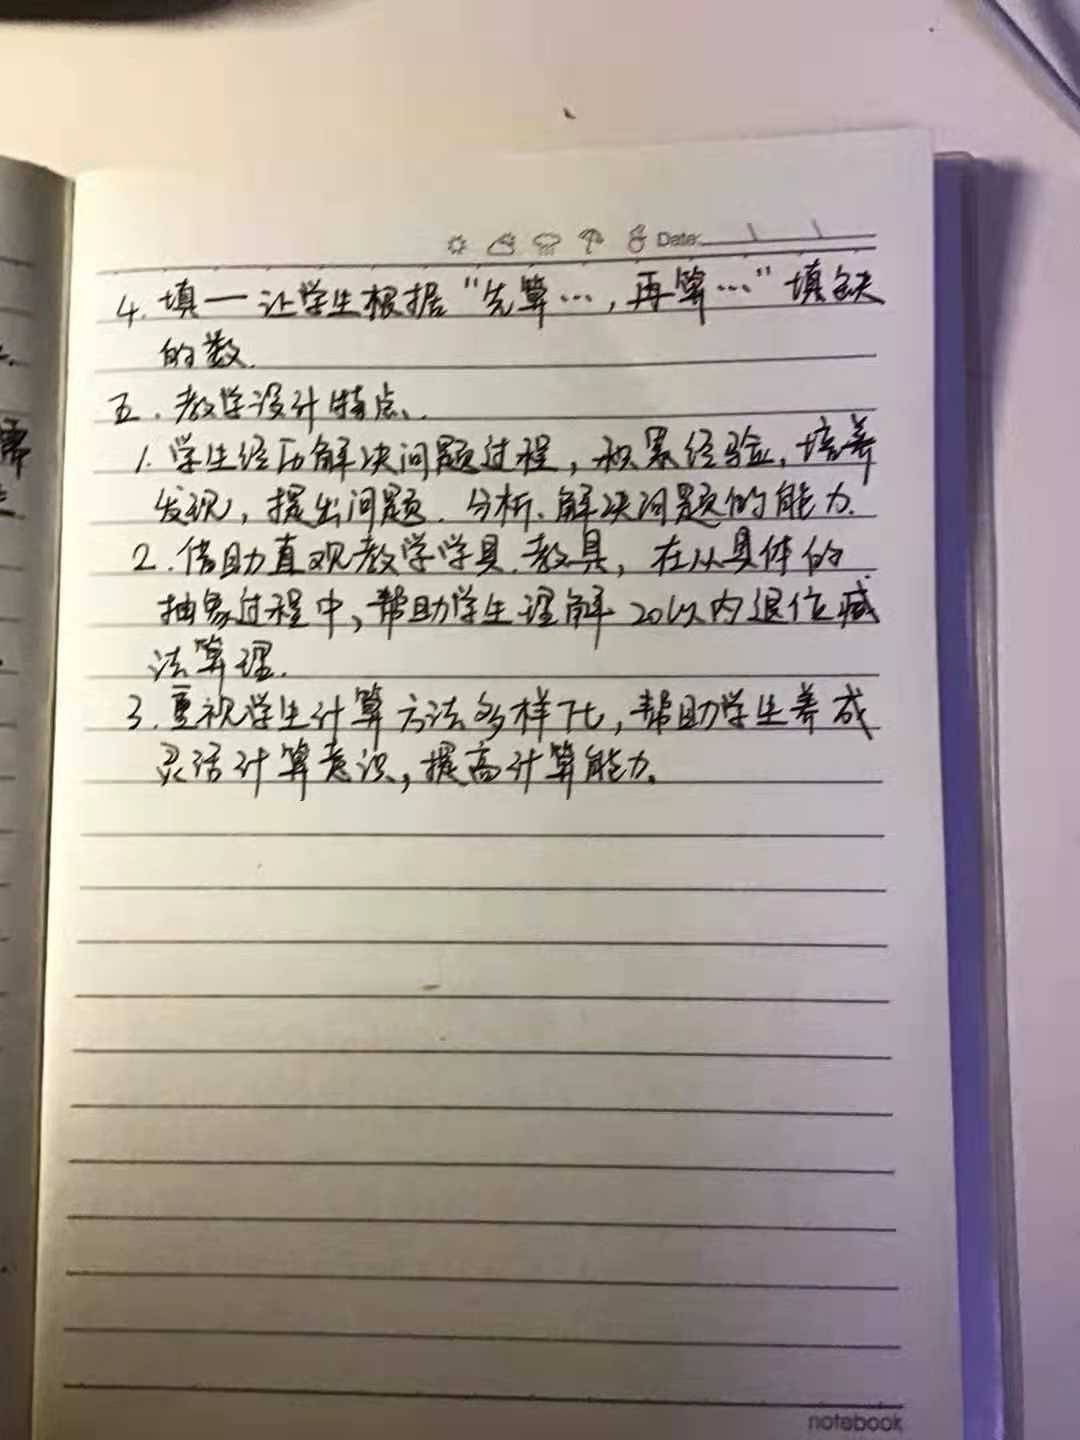 Date:
4. 填一让学生根据“先算…，再算…”填缺
的数.
五. 教学设计特点、
1. 学生经历解决问题过程，积累经验，培养
发现，提出问题. 分析、解决问题的能力.
2. 借助直观教学学具. 教具，在从具体的
抽象过程中，帮助学生理解20以内退位减
法算理.
3. 重视学生计算方法多样化，帮助学生养成
灵活计算意识，提高计算能力.
notebook